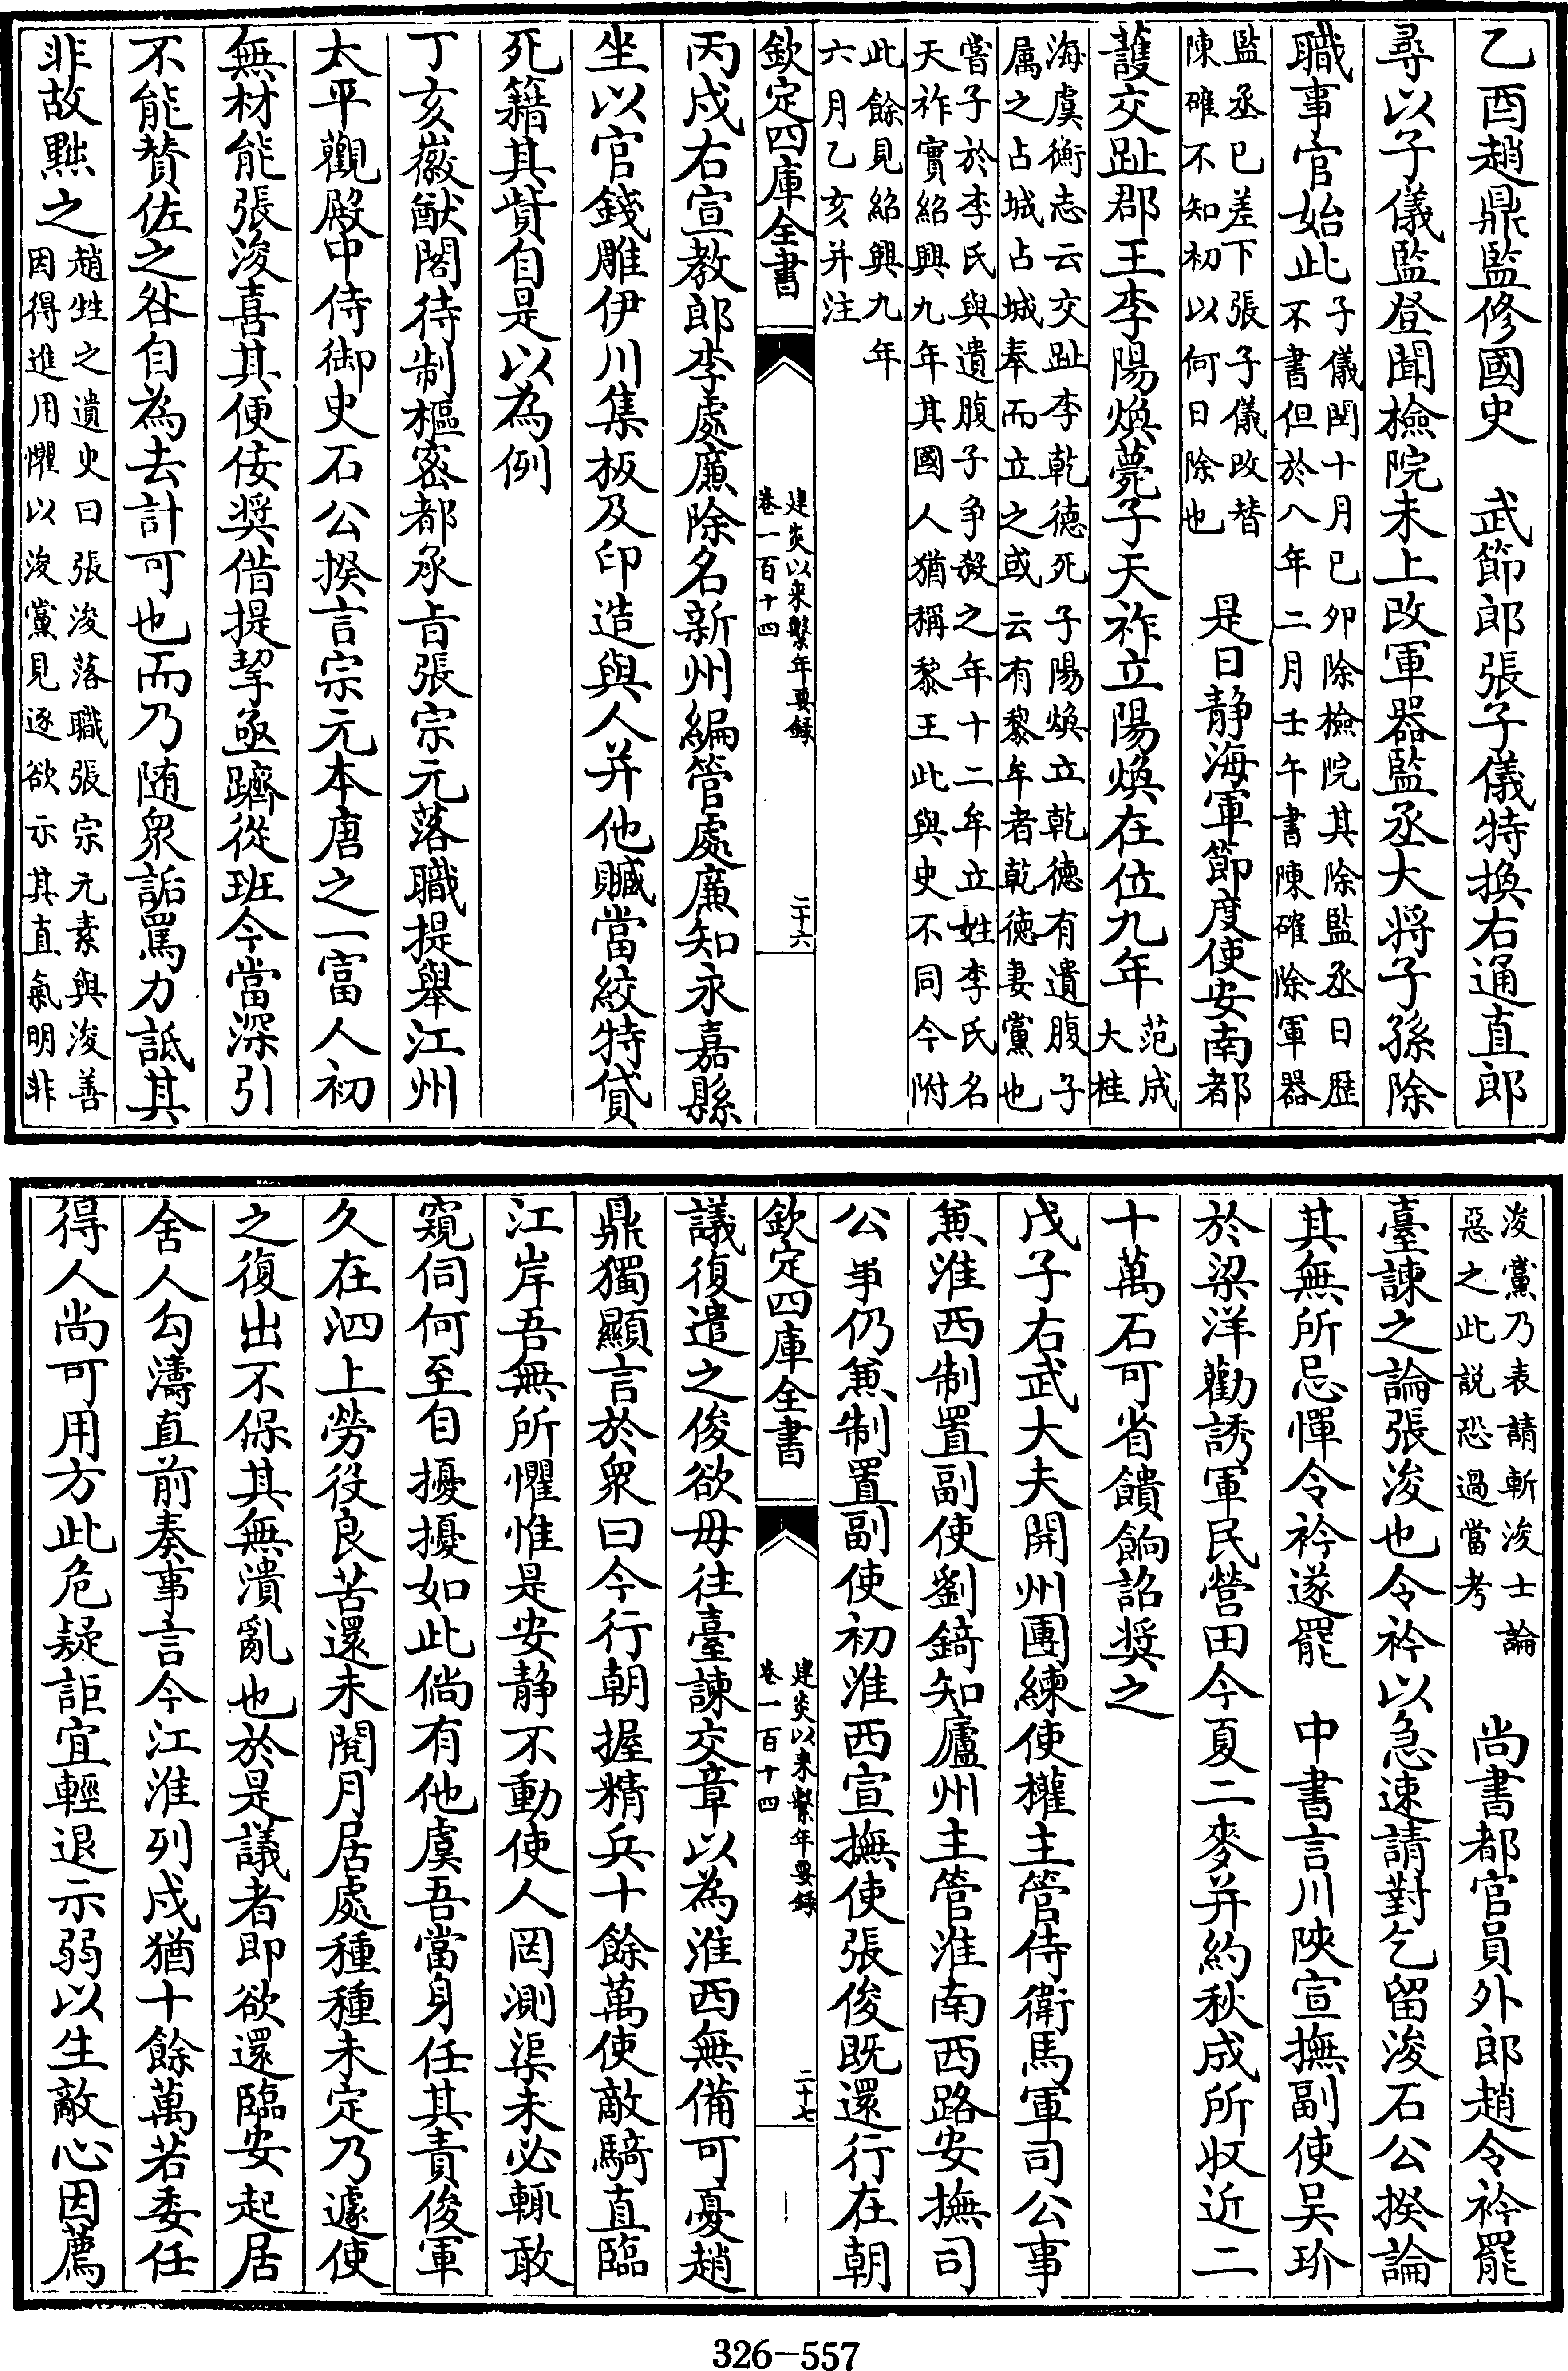 乙酉趙鼎監修國史　武節郎張子儀特換右通直郎
尋以子儀監登聞檢院未上改軍器監丞大將子孫除
職事官始此子儀閏十月己卯除檢院其除監丞日歴
不書但於八年二月壬午書陳確除軍器
監丞已差下張子儀改替
陳確不知初以何日除也　是日静海軍節度使安南都
護交趾郡王李陽煥薨子天祚立陽煥在位九年范成
大桂
海虞衡志云交趾李乾德死子陽煥立乾德有遺腹子
属之占城占城奉而立之或云有黎牟者乾德妻黨也
嘗子於李氏與遺腹子争殺之年十二牟立姓李氏名
天祚實紹興九年其國人猶稱黎王此與史不同今附
此餘見紹興九年
六月乙亥并注
欽定四庫全書
建炎以來繫年要録
卷一百十四
二十六
丙戍右宣教郎李處廉除名新州編管處廉知永嘉縣
坐以官錢雕伊川集板及印造與人并他贓當絞特貸
死籍其貲自是以為例
丁亥徽猷閣待制樞密都承旨張宗元落職提舉江州
太平觀殿中侍御史石公揆言宗元本唐之一富人初
無材能張浚喜其便佞奨借提挈亟躋從班今當深引
不能賛佐之咎自為去計可也而乃随衆詬罵力詆其
非故黜之趙甡之遺史曰張浚落職張宗元素與浚善
因得進用懼以浚黨見逐欲示其直氣明非
浚黨乃表請斬浚士論
惡之此説恐過當考　尚書都官員外郎趙令衿罷
臺諫之論張浚也令衿以急速請對乞留浚石公揆論
其無所忌憚令衿遂罷　中書言川陜宣撫副使吴玠
於梁洋勸誘軍民營田今夏二麥并約秋成所收近二
十萬石可省饋餉詔奨之
戊子右武大夫開州團練使權主管侍衛馬軍司公事
兼淮西制置副使劉錡知廬州主管淮南西路安撫司
公事仍兼制置副使初淮西宣撫使張俊既還行在朝
欽定四庫全書
建炎以來繫年要録
卷一百十四
二十七
議復遣之俊欲毋往臺諫交章以為淮西無備可憂趙
鼎獨顯言於衆曰今行朝握精兵十餘萬使敵騎直臨
江岸吾無所懼惟是安静不動使人罔測渠未必輒敢
窺伺何至自擾擾如此倘有他虞吾當身任其責俊軍
久在泗上勞役良苦還未閱月居處種種未定乃遽使
之復出不保其無潰亂也於是議者即欲還臨安起居
舍人勾濤直前奏事言今江淮列戍猶十餘萬若委任
得人尚可用方此危疑詎宜輕退示弱以生敵心因薦
326—557